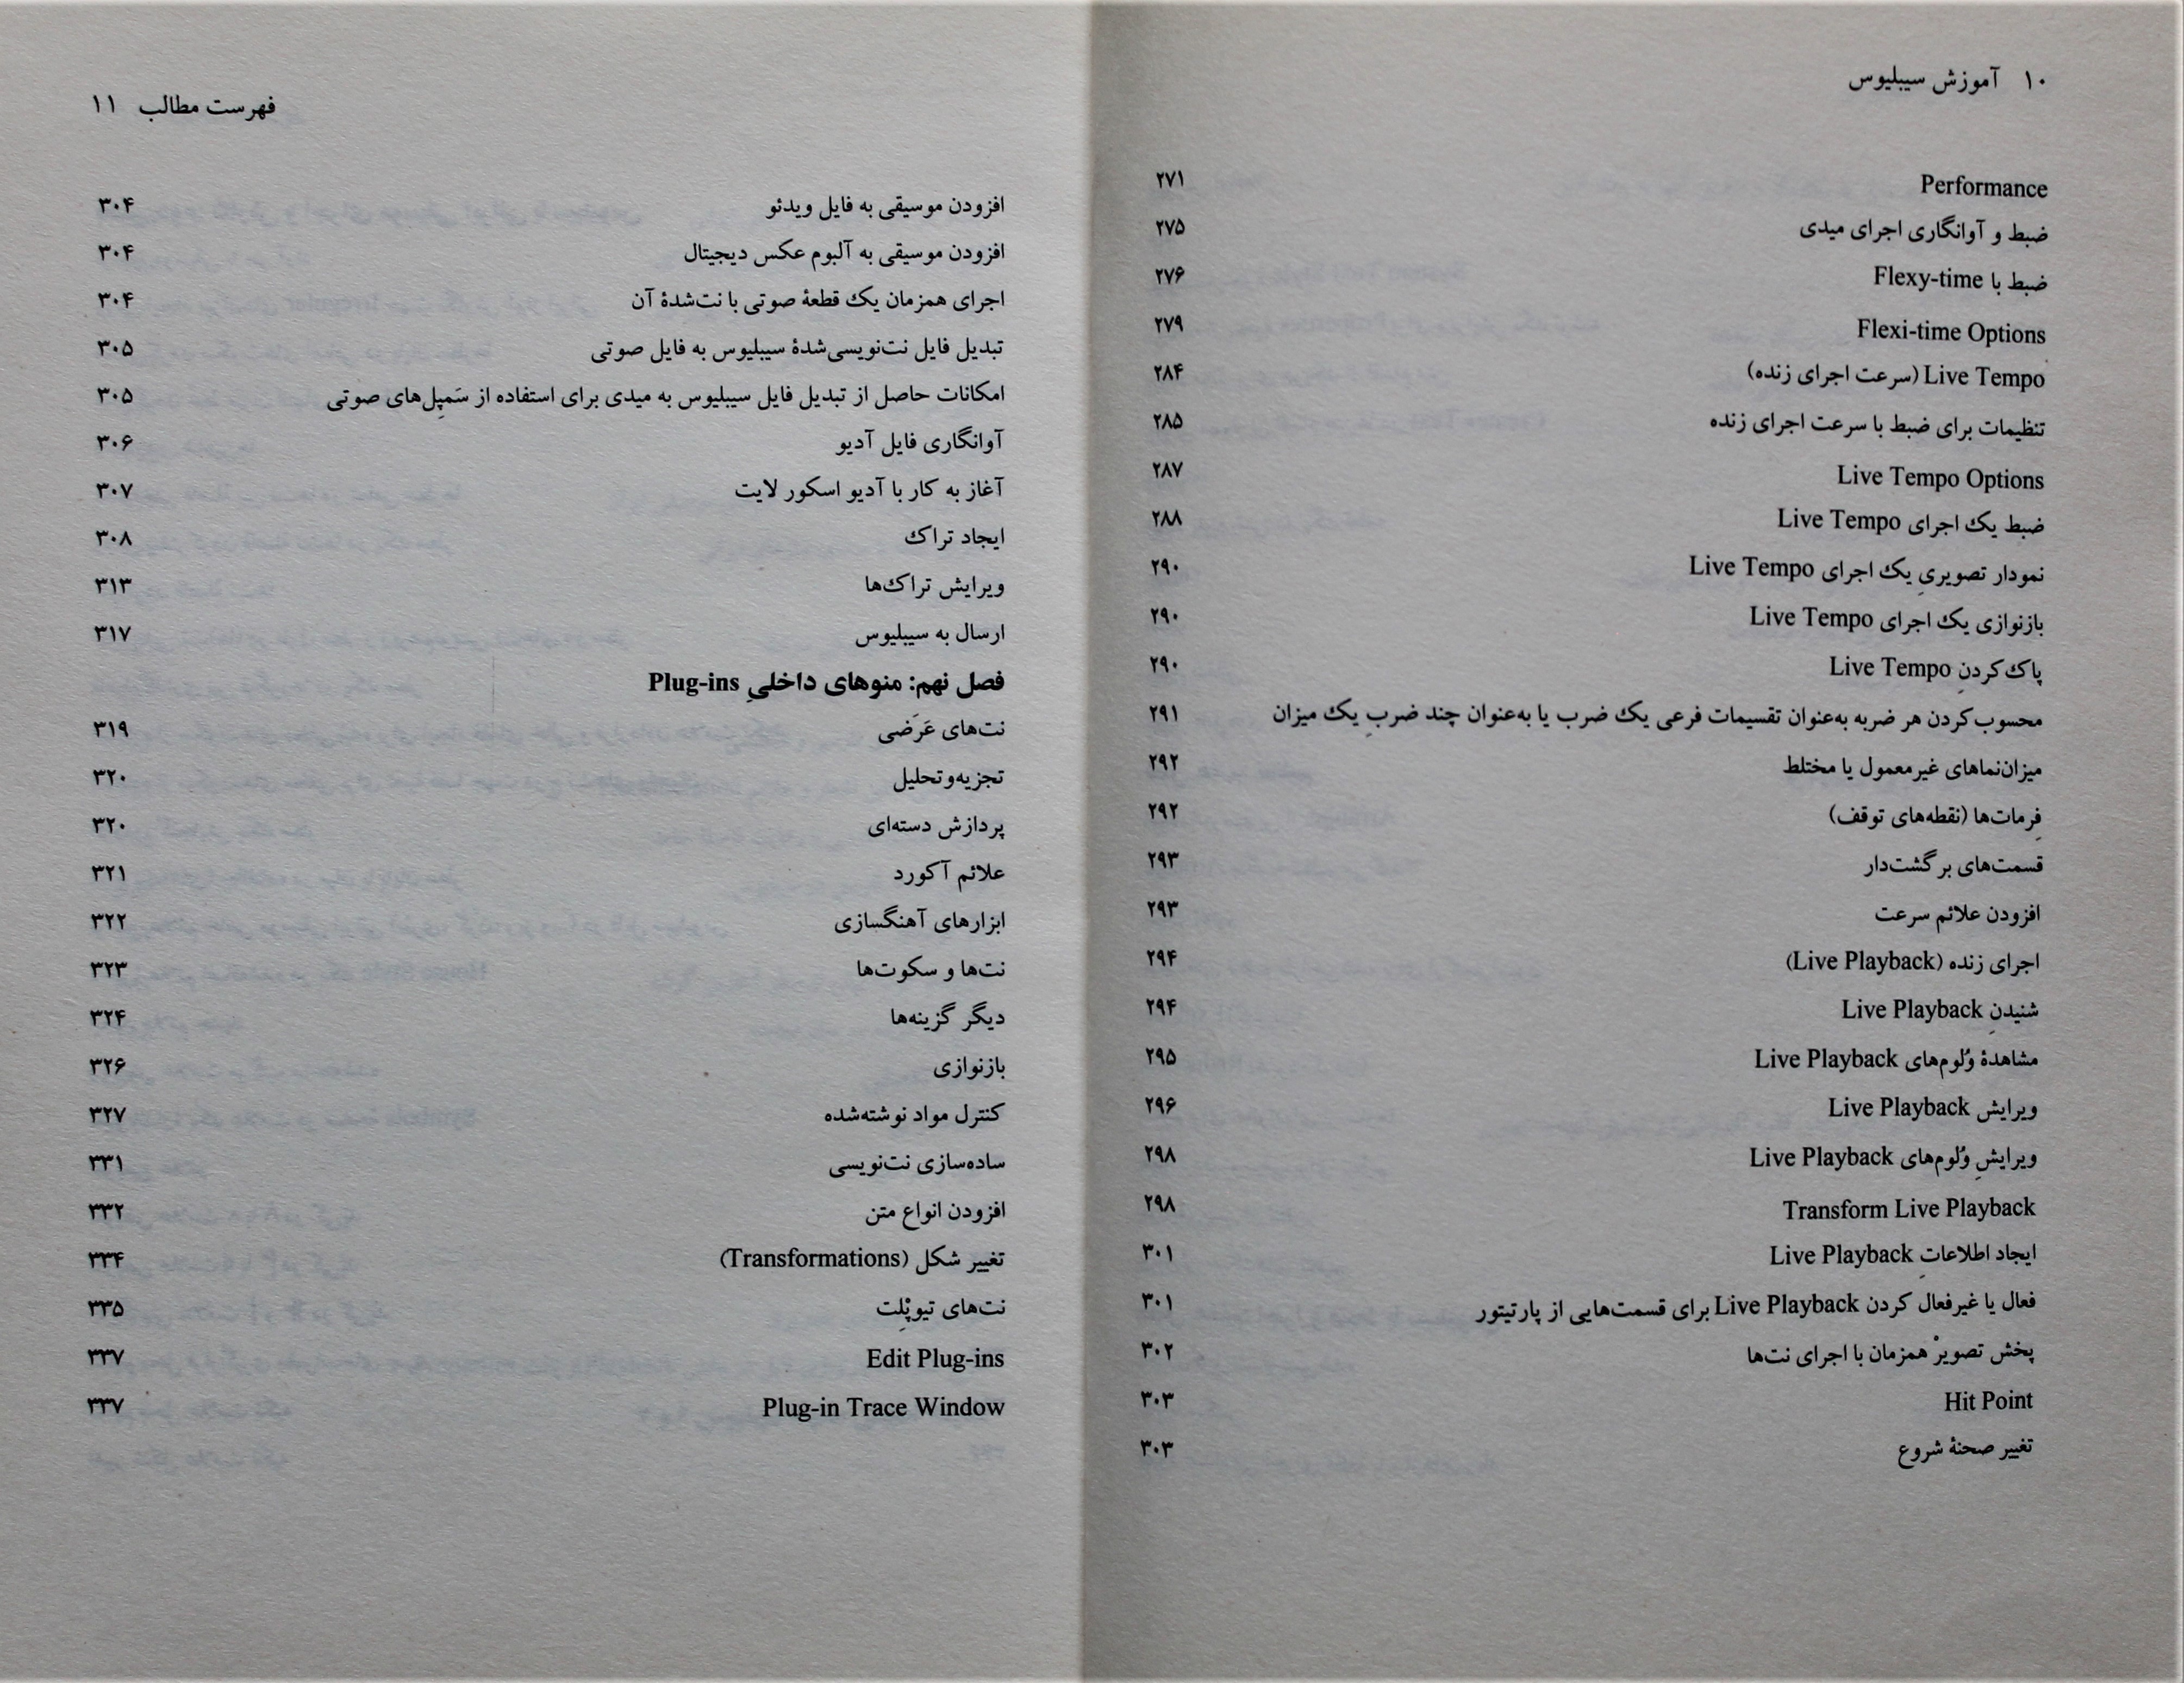 ۱۰ آموزش سیبلیوس
Performance ۲۷۱
ضبط و آوانگاری اجرای میدی ۲۷۵
ضبط با Flexy-time ۲۷۶
Flexi-time Options ۲۷۹
Live Tempo (سرعت اجرای زنده) ۲۸۴
تنظیمات برای ضبط با سرعت اجرای زنده ۲۸۵
Live Tempo Options ۲۸۷
ضبط یک اجرای Live Tempo ۲۸۸
نمودار تصویریِ یک اجرای Live Tempo ۲۹۰
بازنوازی یک اجرای Live Tempo ۲۹۰
پاک‌کردنِ Live Tempo ۲۹۰
محسوب‌کردن هر ضربه به‌عنوان تقسیمات فرعی یک ضرب یا به‌عنوان چند ضربِ یک میزان ۲۹۱
میزان‌نماهای غیرمعمول یا مختلط ۲۹۲
فِرمات‌ها (نقطه‌های توقف) ۲۹۲
قسمت‌های برگشت‌دار ۲۹۳
افزودن علائم سرعت ۲۹۳
اجرای زنده (Live Playback) ۲۹۴
شنیدنِ Live Playback ۲۹۴
مشاهدهٔ وُلوم‌های Live Playback ۲۹۵
ویرایش Live Playback ۲۹۶
ویرایشِ وُلوم‌های Live Playback ۲۹۸
Transform Live Playback ۲۹۸
ایجاد اطلاعاتِ Live Playback ۳۰۱
فعال یا غیرفعال کردن Live Playback برای قسمت‌هایی از پارتیتور ۳۰۱
پخش تصویرْ همزمان با اجرای نت‌ها ۳۰۲
Hit Point ۳۰۳
تغییر صحنهٔ شروع ۳۰۳
فهرست مطالب ۱۱
افزودن موسیقی به فایل ویدئو ۳۰۴
افزودن موسیقی به آلبوم عکس دیجیتال ۳۰۴
اجرای همزمان یک قطعهٔ صوتی با نت‌شدهٔ آن ۳۰۴
تبدیل فایل نت‌نویسی‌شدهٔ سیبلیوس به فایل صوتی ۳۰۵
امکانات حاصل از تبدیل فایل سیبلیوس به میدی برای استفاده از سَمپِل‌های صوتی ۳۰۵
آوانگاری فایل آدیو ۳۰۶
آغاز به کار با آدیو اسکور لایت ۳۰۷
ایجاد تراک ۳۰۸
ویرایش تراک‌ها ۳۱۳
ارسال به سیبلیوس ۳۱۷
فصل نهم: منوهای داخلیِ Plug-ins
نت‌های عَرَضی ۳۱۹
تجزیه‌وتحلیل ۳۲۰
پردازش دسته‌ای ۳۲۰
علائم آکورد ۳۲۱
ابزارهای آهنگسازی ۳۲۲
نت‌ها و سکوت‌ها ۳۲۳
دیگر گزینه‌ها ۳۲۴
بازنوازی ۳۲۶
کنترل مواد نوشته‌شده ۳۲۷
ساده‌سازی نت‌نویسی ۳۳۱
افزودن انواع متن ۳۳۲
تغییر شکل (Transformations) ۳۳۴
نت‌های تیوپْلِت ۳۳۵
Edit Plug-ins ۳۳۷
Plug-in Trace Window ۳۳۷